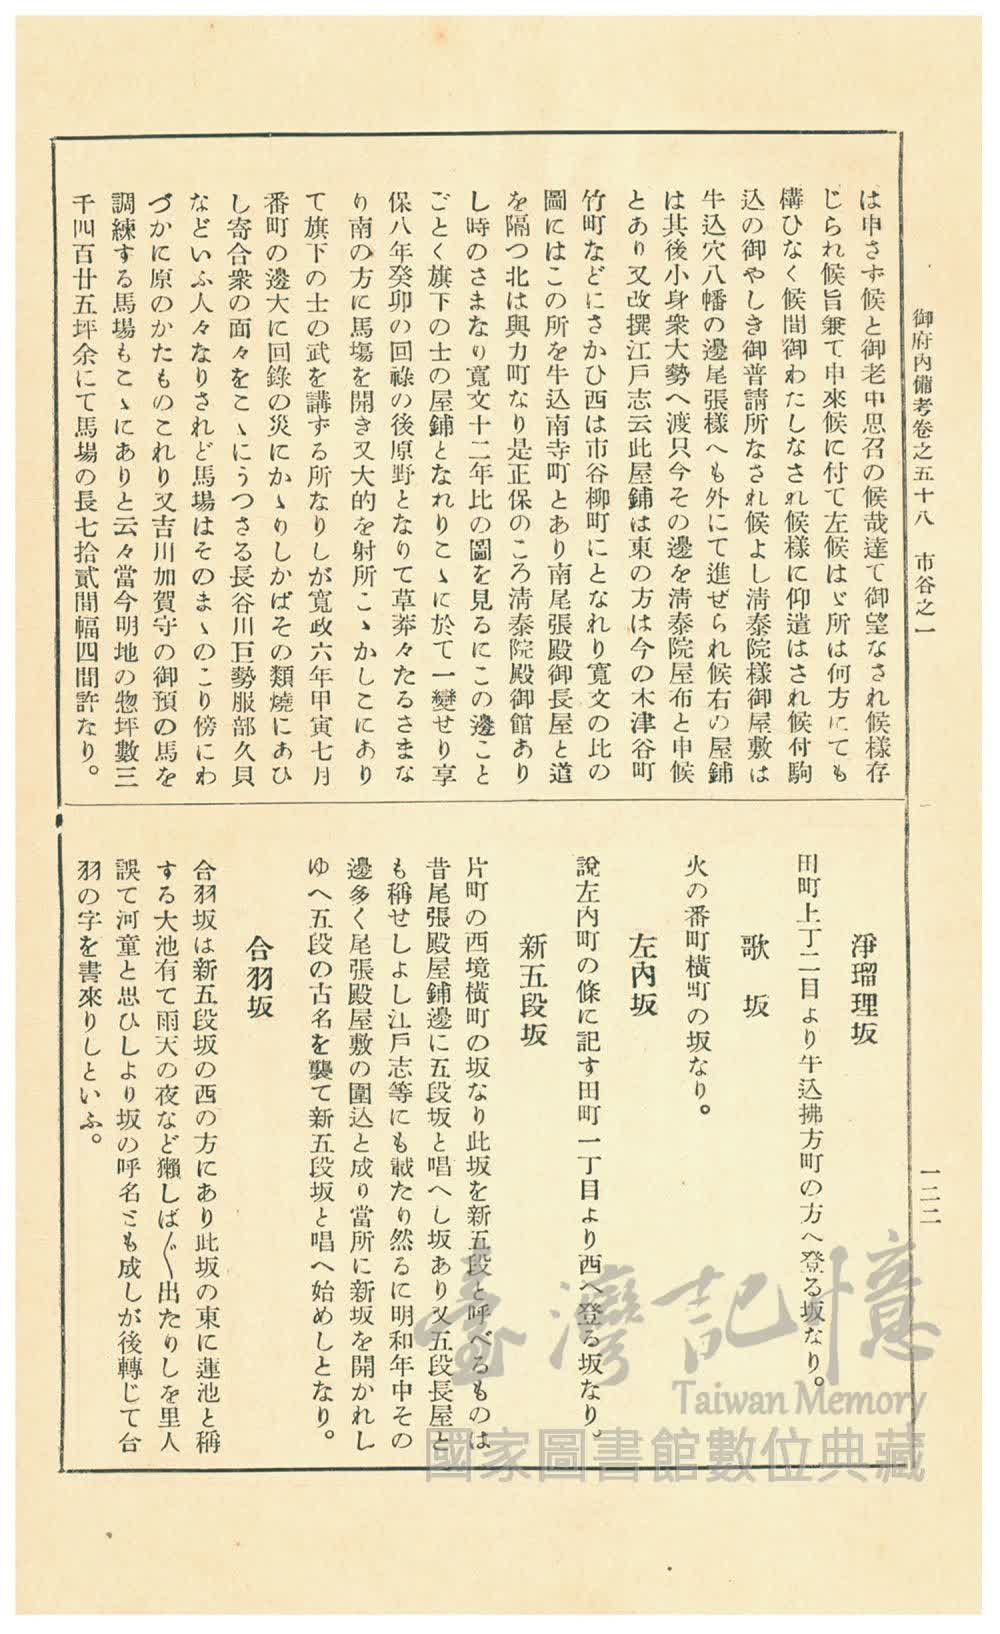 御府內備考卷之五十八　市谷之一
一二二
は申さず候と御老中思召の候哉達て御望なされ候樣存
じられ候旨兼て申來候に付て左候はゞ所は何方にても
構ひなく候間御わたしなされ候樣に仰遣はされ候付駒
込の御やしき御普請所なされ候よし淸泰院樣御屋敷は
牛込穴八幡の邊尾張樣へも外にて進ぜられ候右の屋鋪
は其後小身衆大勢へ渡只今その邊を淸泰院屋布と申候
とあり又改撰江戶志云此屋鋪は東の方は今の木津谷町
竹町などにさかひ西は市谷柳町にとなれり寬文の比の
圖にはこの所を牛込南寺町とあり南尾張殿御長屋と道
を隔つ北は與力町なり是正保のころ淸泰院殿御館あり
し時のさまなり寬文十二年比の圖を見るにこの邊こと
ごとく旗下の士の屋鋪となれりこゝに於て一變せり享
保八年癸卯の回祿の後原野となりて草莽々たるさまな
り南の方に馬塲を開き又大的を射所こゝかしこにあり
て旗下の士の武を講ずる所なりしが寬政六年甲寅七月
番町の邊大に回錄の災にかゝりしかばその類燒にあひ
し寄合衆の面々をこゝにうつさる長谷川巨勢服部久貝
などいふ人々なりされど馬場はそのまゝのこり傍にわ
づかに原のかたものこれり又吉川加賀守の御預の馬を
調練する馬場もこゝにありと云々當今明地の惣坪數三
千四百廿五坪余にて馬場の長七拾貳間幅四間許なり。
淨瑠理坂
田町上丁二目より牛込拂方町の方へ登る坂なり。
歌　坂
火の番町橫町の坂なり。
左內坂
說左內町の條に記す田町一丁目より西へ登る坂なり。
新五段坂
片町の西境橫町の坂なり此坂を新五段と呼べるものは
昔尾張殿屋鋪邊に五段坂と唱へし坂あり又五段長屋と
も稱せしよし江戶志等にも載たり然るに明和年中その
邊多く尾張殿屋敷の圍込と成り當所に新坂を開かれし
ゆへ五段の古名を襲て新五段坂と唱へ始めしとなり。
合羽坂
合羽坂は新五段坂の西の方にあり此坂の東に蓮池と稱
する大池有て雨天の夜など獺しば〳〵出たりしを里人
誤て河童と思ひしより坂の呼名とも成しが後轉じて合
羽の字を書來りしといふ。
臺灣記憶
Taiwan Memory
國家圖書館數位典藏